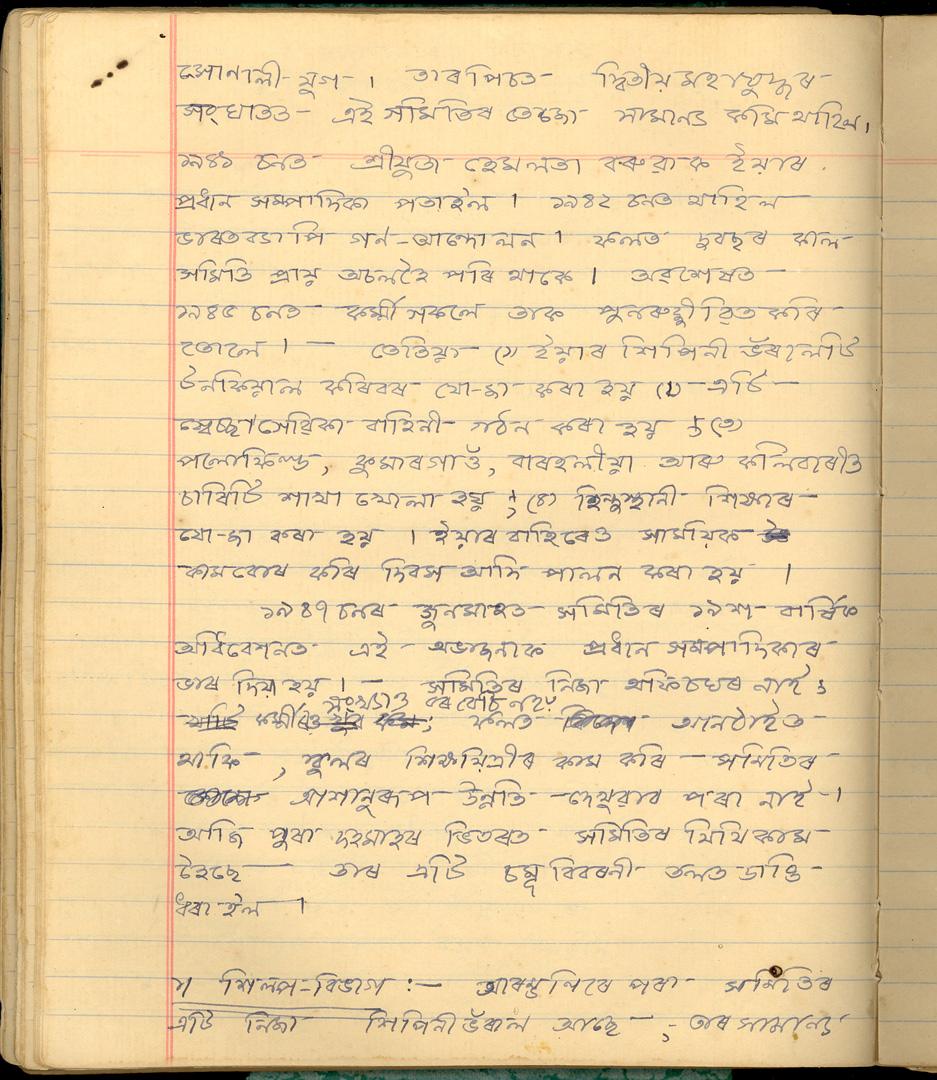 সোণালী-যুগ । তাৰ পিচত দ্বিতীয় মহাযুদ্ধৰ
সংঘাতত এই সমিতিৰ তেজো সামান্য কমি যাহিল।
১৯৪১ চনত শ্ৰীযুতা হেমলতা বৰুৱাক ইয়াৰ
প্ৰধান সম্পাদিকা পতাহল । ১৯৪২ চনত আহিল
ভাৰতব্যাপি গণ-আন্দোলন । ফলত দুবছৰ কাল
সমিতি প্ৰায় অচলহৈ পৰি থাকে । অৱশেষত
১৯৪৫ চনত কৰ্ম্মী সকলে তাক পুনৰুজ্জীৱিত কৰি
তোলে । — তেতিয়া (১) ইয়াৰ শিপিনী ভঁৰালটি
টনকিয়াল কৰিবৰ যো-জা কৰা হয় (২) এটি
স্বেচ্ছাসেৱিকা বাহিনী গঠন কৰা হয় ; (৩)
পলোফিল্ড, কুমাৰগাওঁ, বাৰহলীয়া আৰু কলিবাৰীত
চাৰিটি শাখা খোলা হয় ; (৪) হিন্দুস্থানী শিক্ষাৰ
যো-জা কৰা হয় । ইয়াৰ বাহিৰেও সাময়িক
কামবোৰ কৰি দিবস আদি পালন কৰা হয় ।
১৯৪৭ চনৰ জুনমাহত সমিতিৰ ১৯শ বাৰ্ষিক
অধিবেশনত এই অভাজনাক প্ৰধান সম্পাদিকাৰ
ভাৰ দিয়া হয় । — সমিতিৰ নিজা অফিচঘৰ নাই ;
সংখ্যাও বৰ বেচি নহয়
কৰ্ম্মীৰও ; ফলত আনঠাইত
থাকি , স্কুলৰ শিক্ষয়িত্ৰীৰ কাম কৰি — সমিতিৰ
আশানুৰূপ উন্নতি দেখুৱাব পৰা নাই ।
আজি পুৰা দহমাহৰ ভিতৰত সমিতিৰ যিযি কাম
হৈছে — তাৰ এটি চমু বিবৰণী তলত ডাঙি
ধৰা হল ।
১। শিল্প-বিভাগ :— আৰম্ভণিৰে পৰা সমিতিৰ
এটি নিজা শিপিনীভঁৰাল আছে — ; তাৰ সামান্য